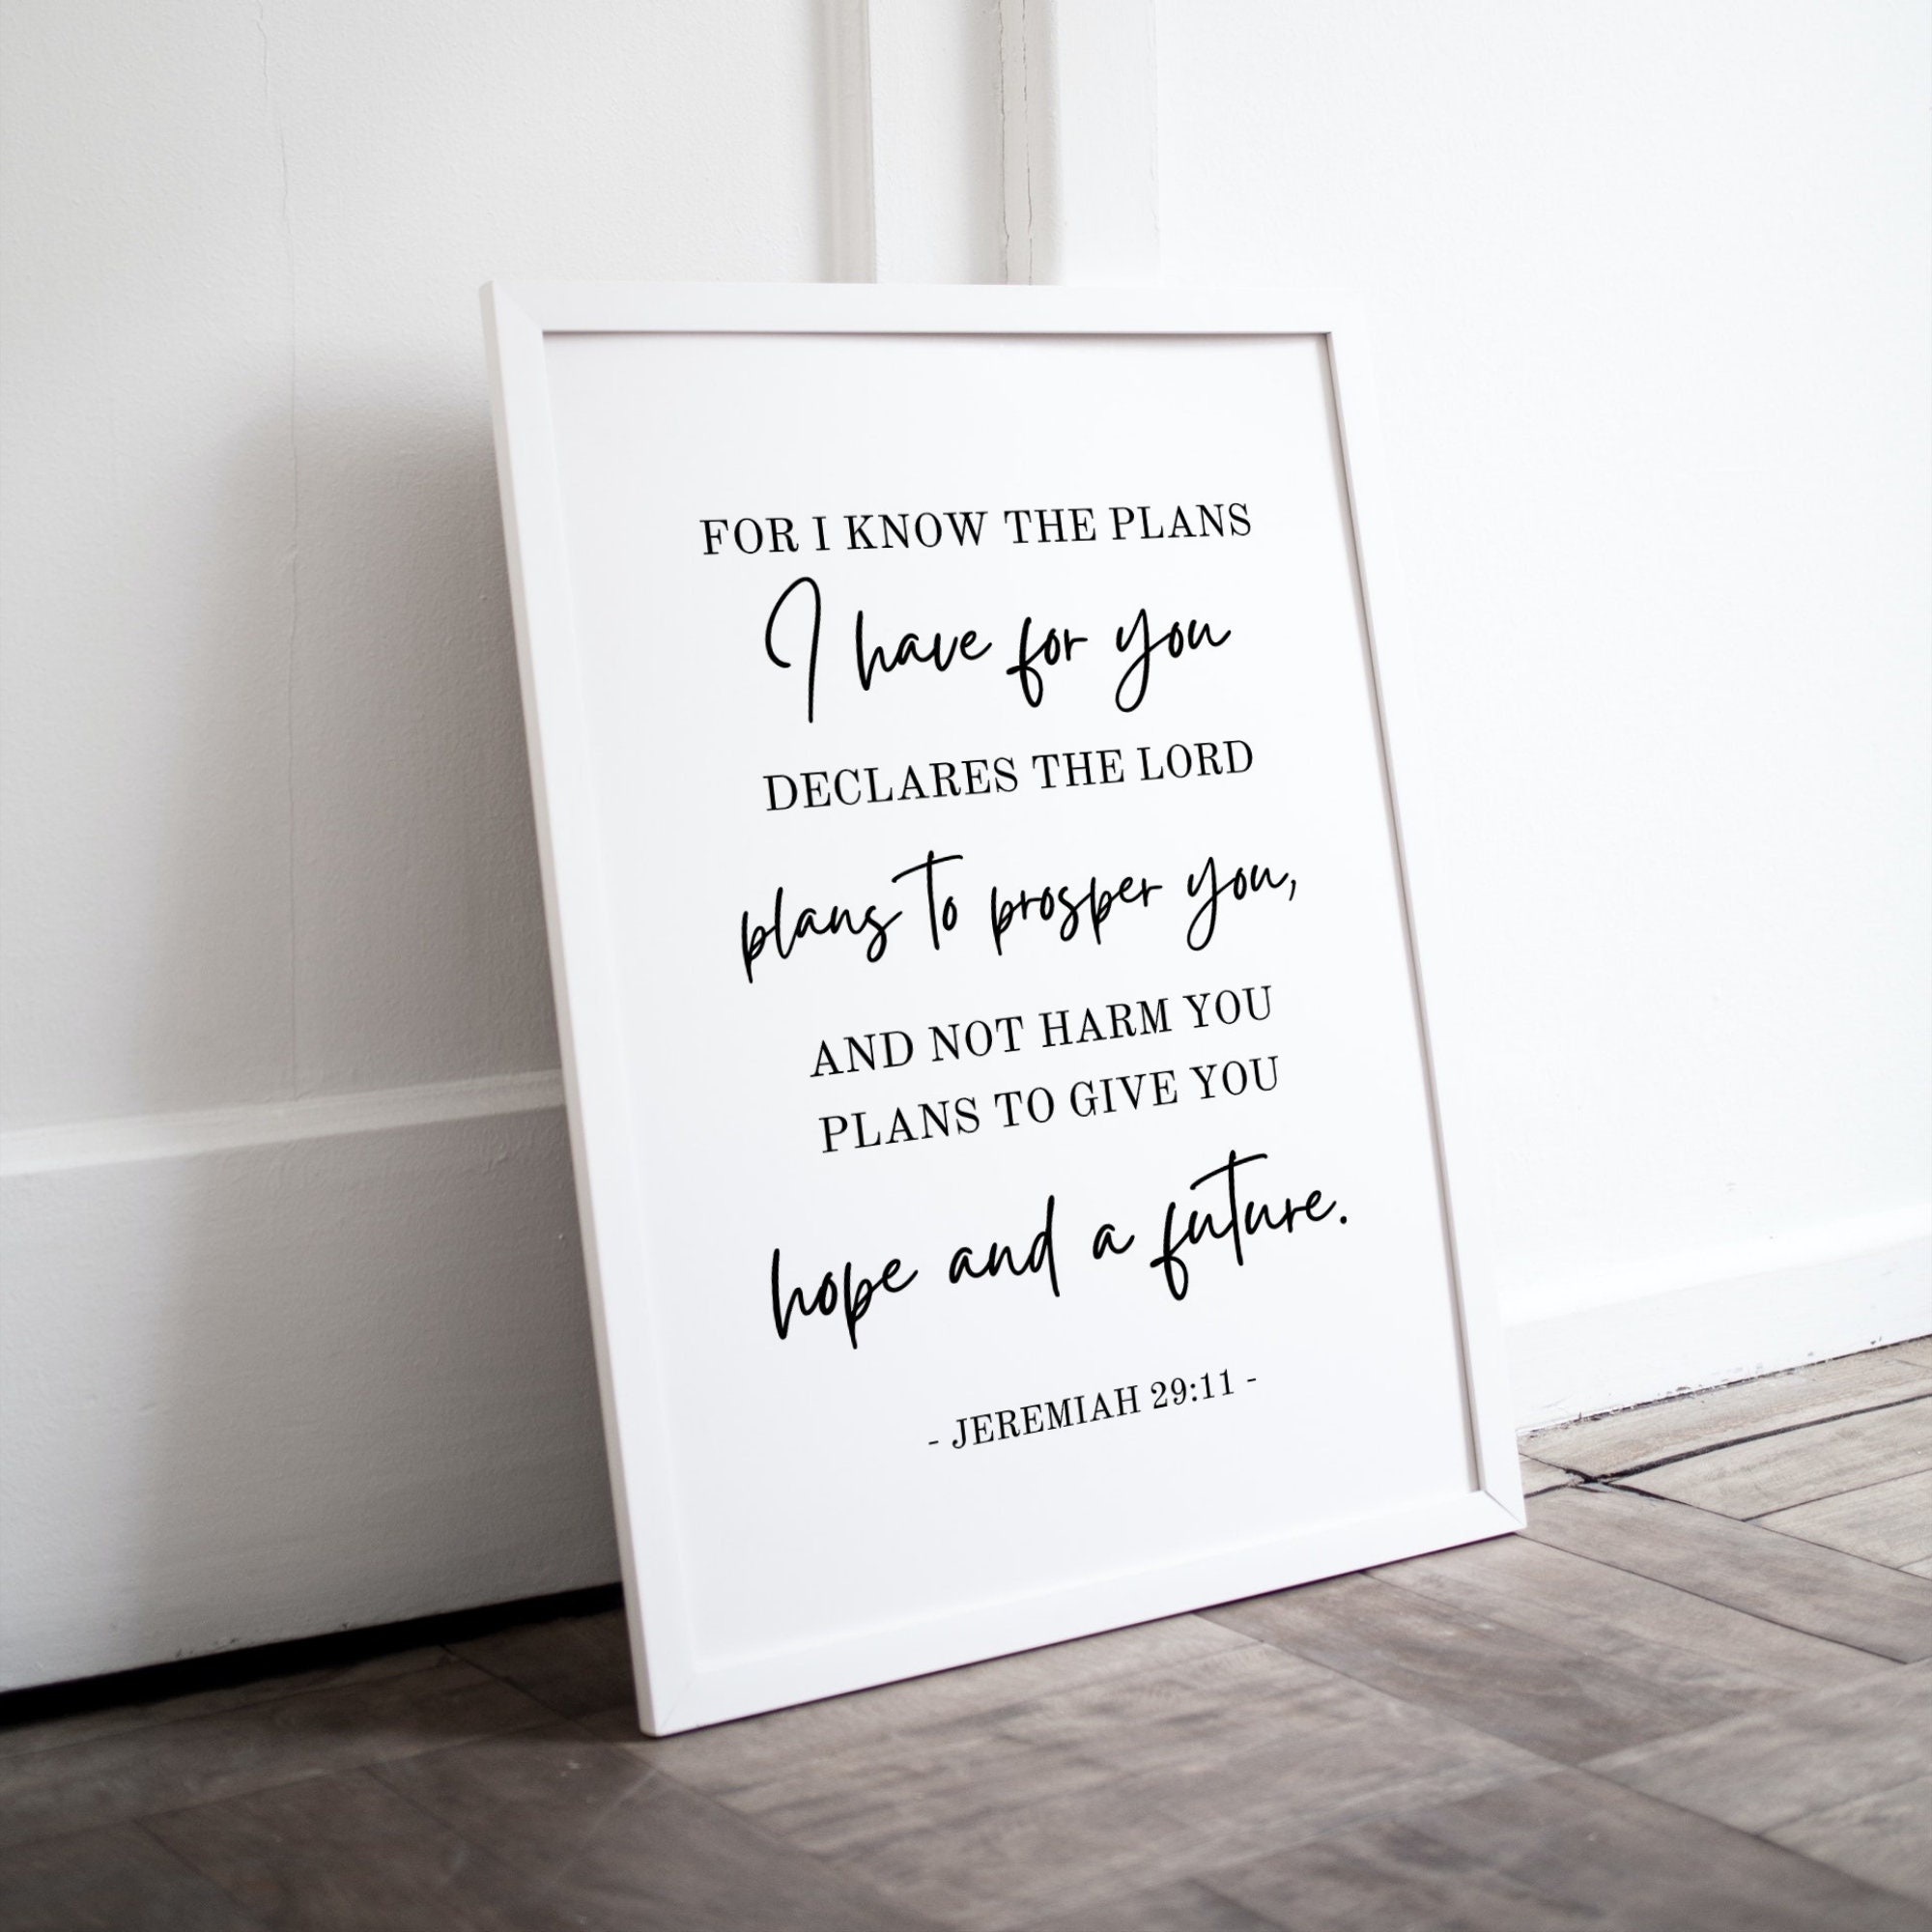 FOR I KNOW THE PLANS
I have for you
DECLARES THE LORD
plans to prosper you,
AND NOT HARM YOU
PLANS TO GIVE YOU
hope and a future.
- JEREMIAH 29:11 -